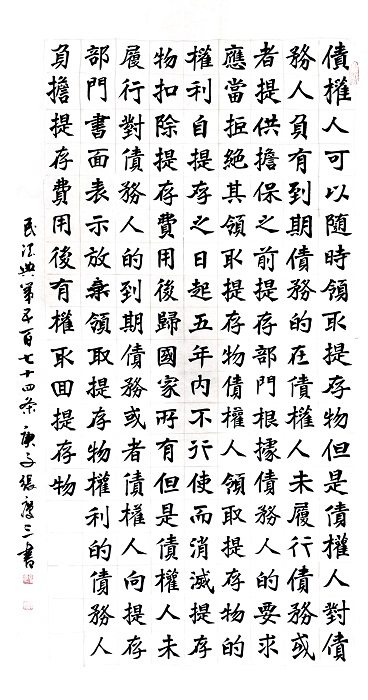 債權人可以隨時領取提存物但是債權人對債
務人負有到期債務的在債權人未履行債務或
者提供擔保之前提存部門根據債務人的要求
應當拒絕其領取提存物債權人領取提存物的
權利自提存之日起五年內不行使而消滅提存
物扣除提存費用後歸國家所有但是債權人未
履行對債務人的到期債務或者債權人向提存
部門書面表示放棄領取提存物權利的債務人
負擔提存費用後有權取回提存物
民法典第五百七十四条 庚子張慶三書